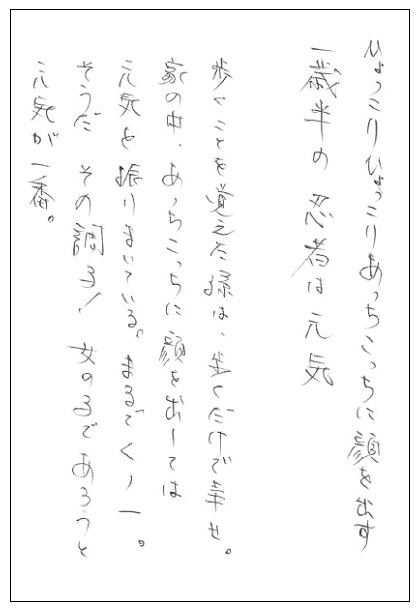 ひょっこりひょっこりあっちこっちに顔を出す
一歳半の 忍者は元気
歩くことを覚えた孫は、歩くだけで幸せ。
家の中、あっちこっちに顔を出しては
元気を振りまいている。まるでくノ一。
そうだ その調子! 女の子であろうと
元気が一番。